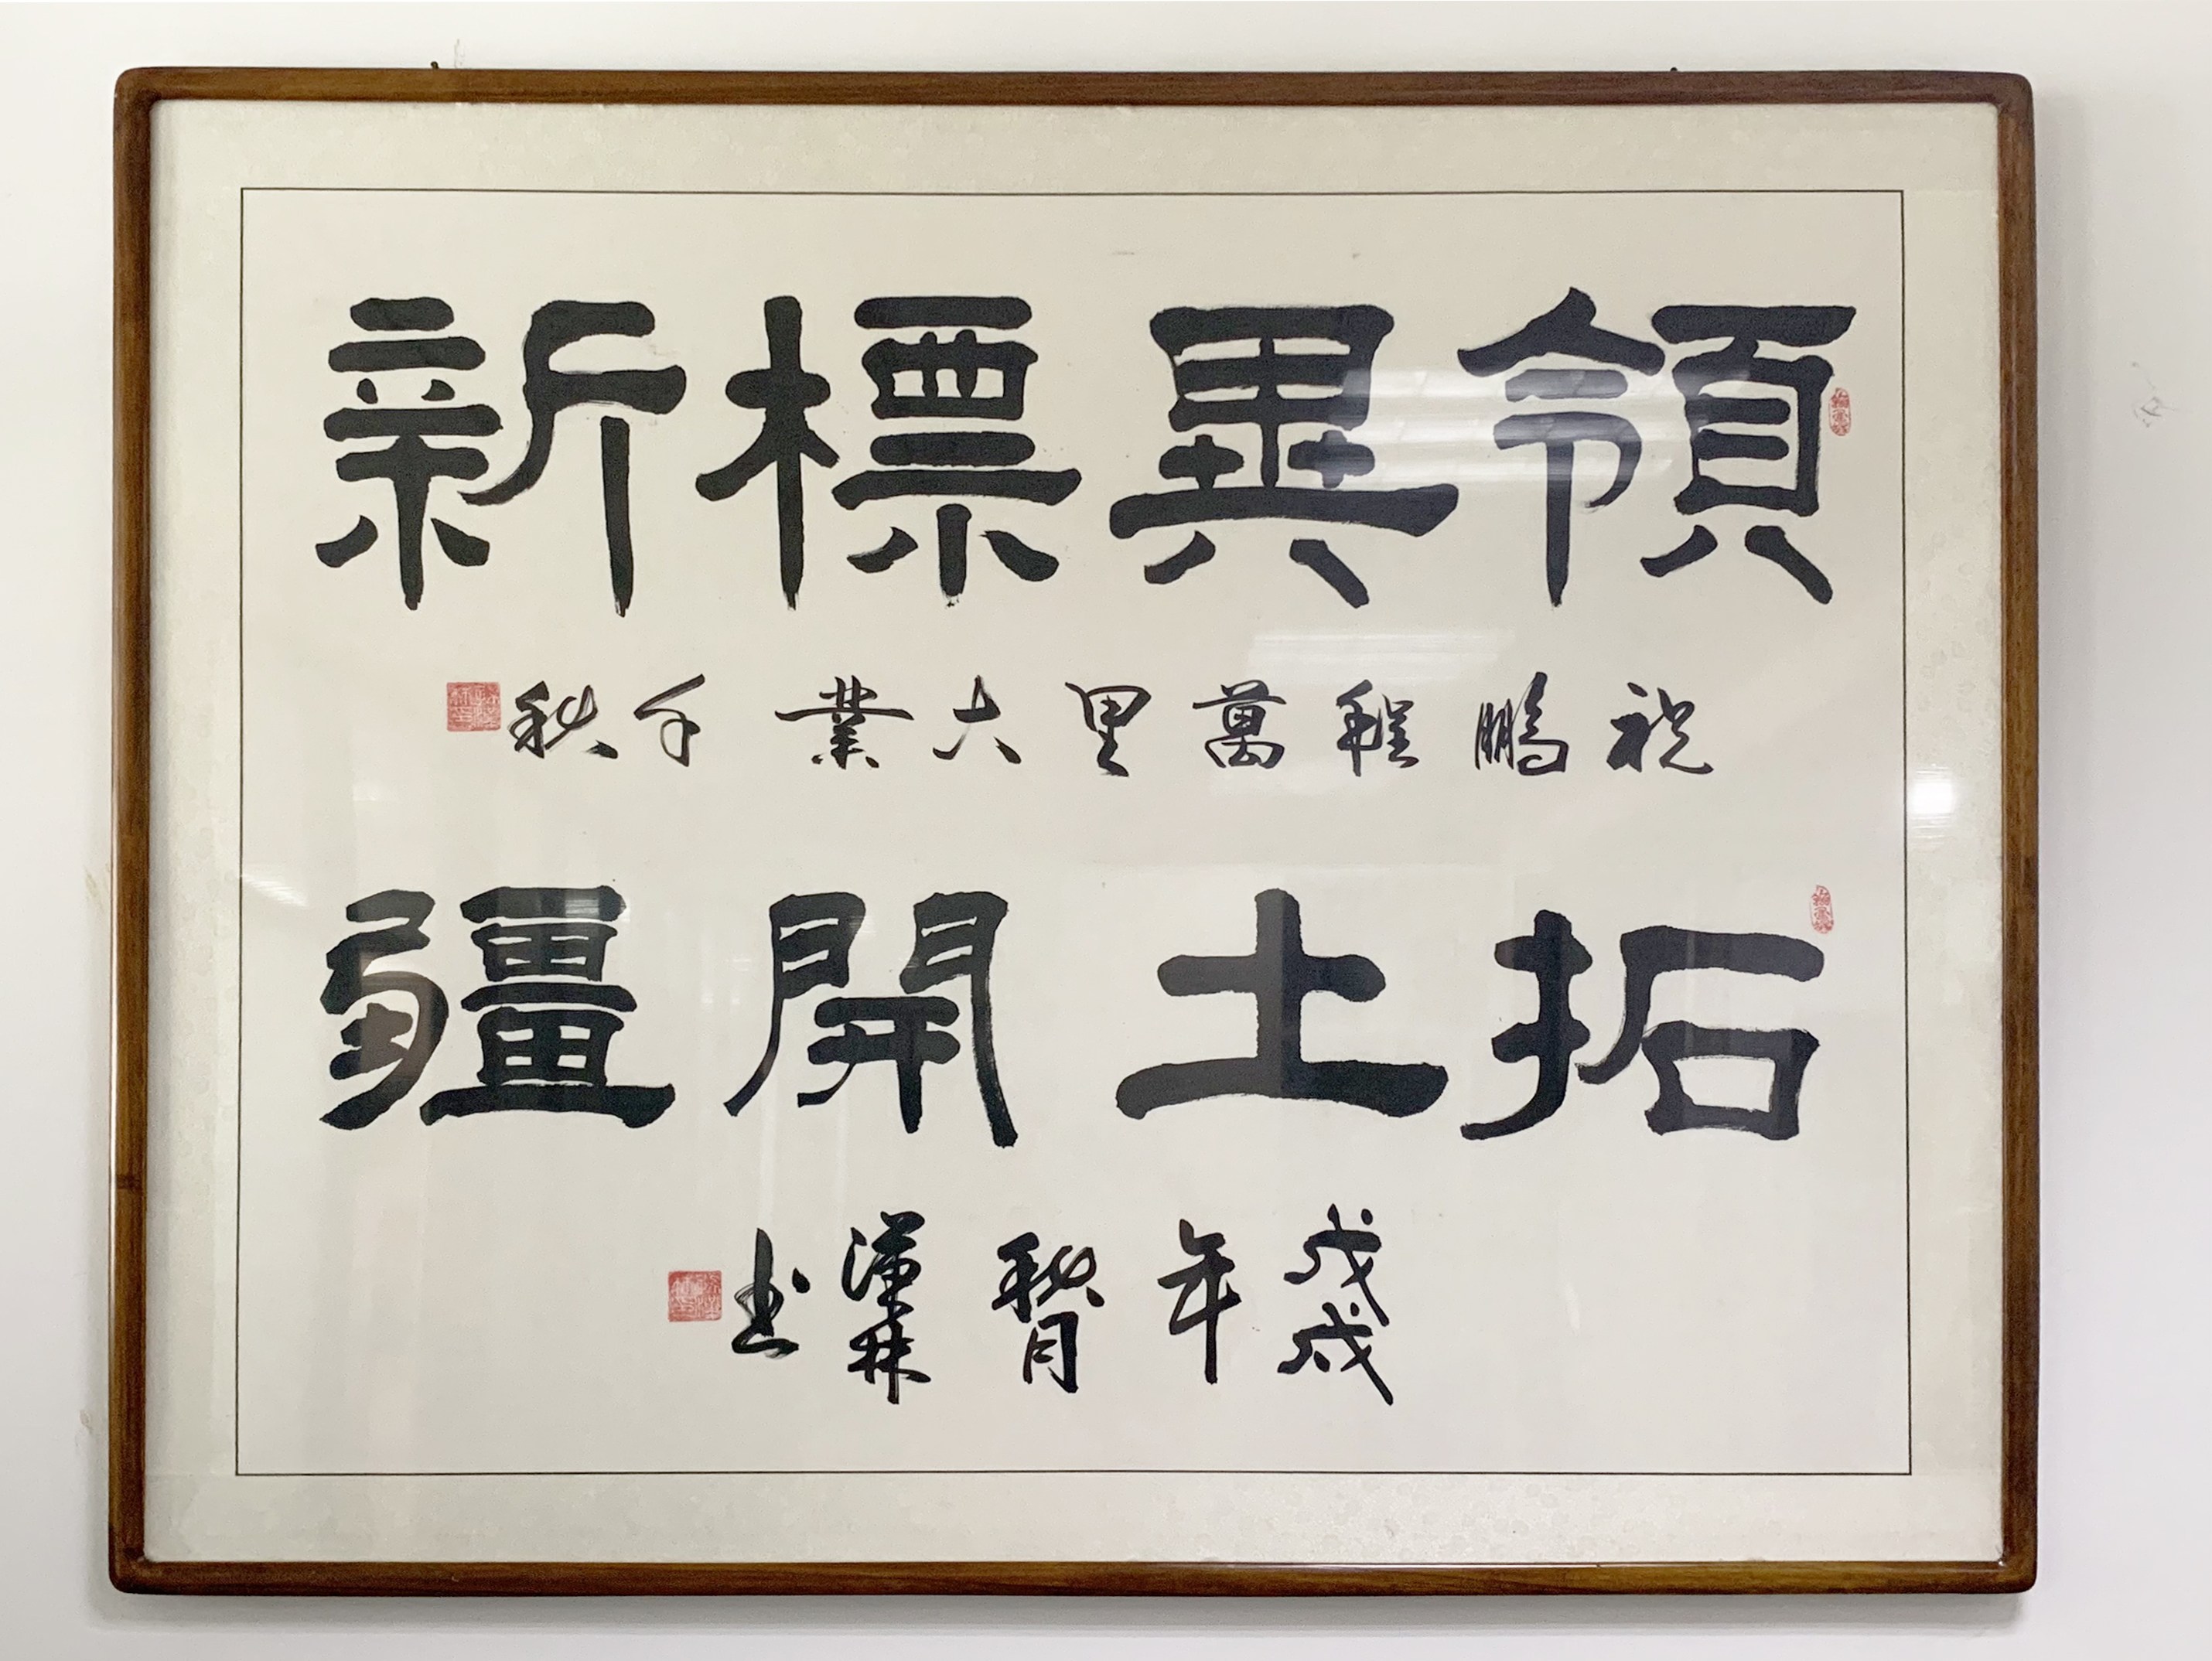 領異標新
祝鵬程萬里大業千秋
拓土開疆
戊戌年秋月漢林书